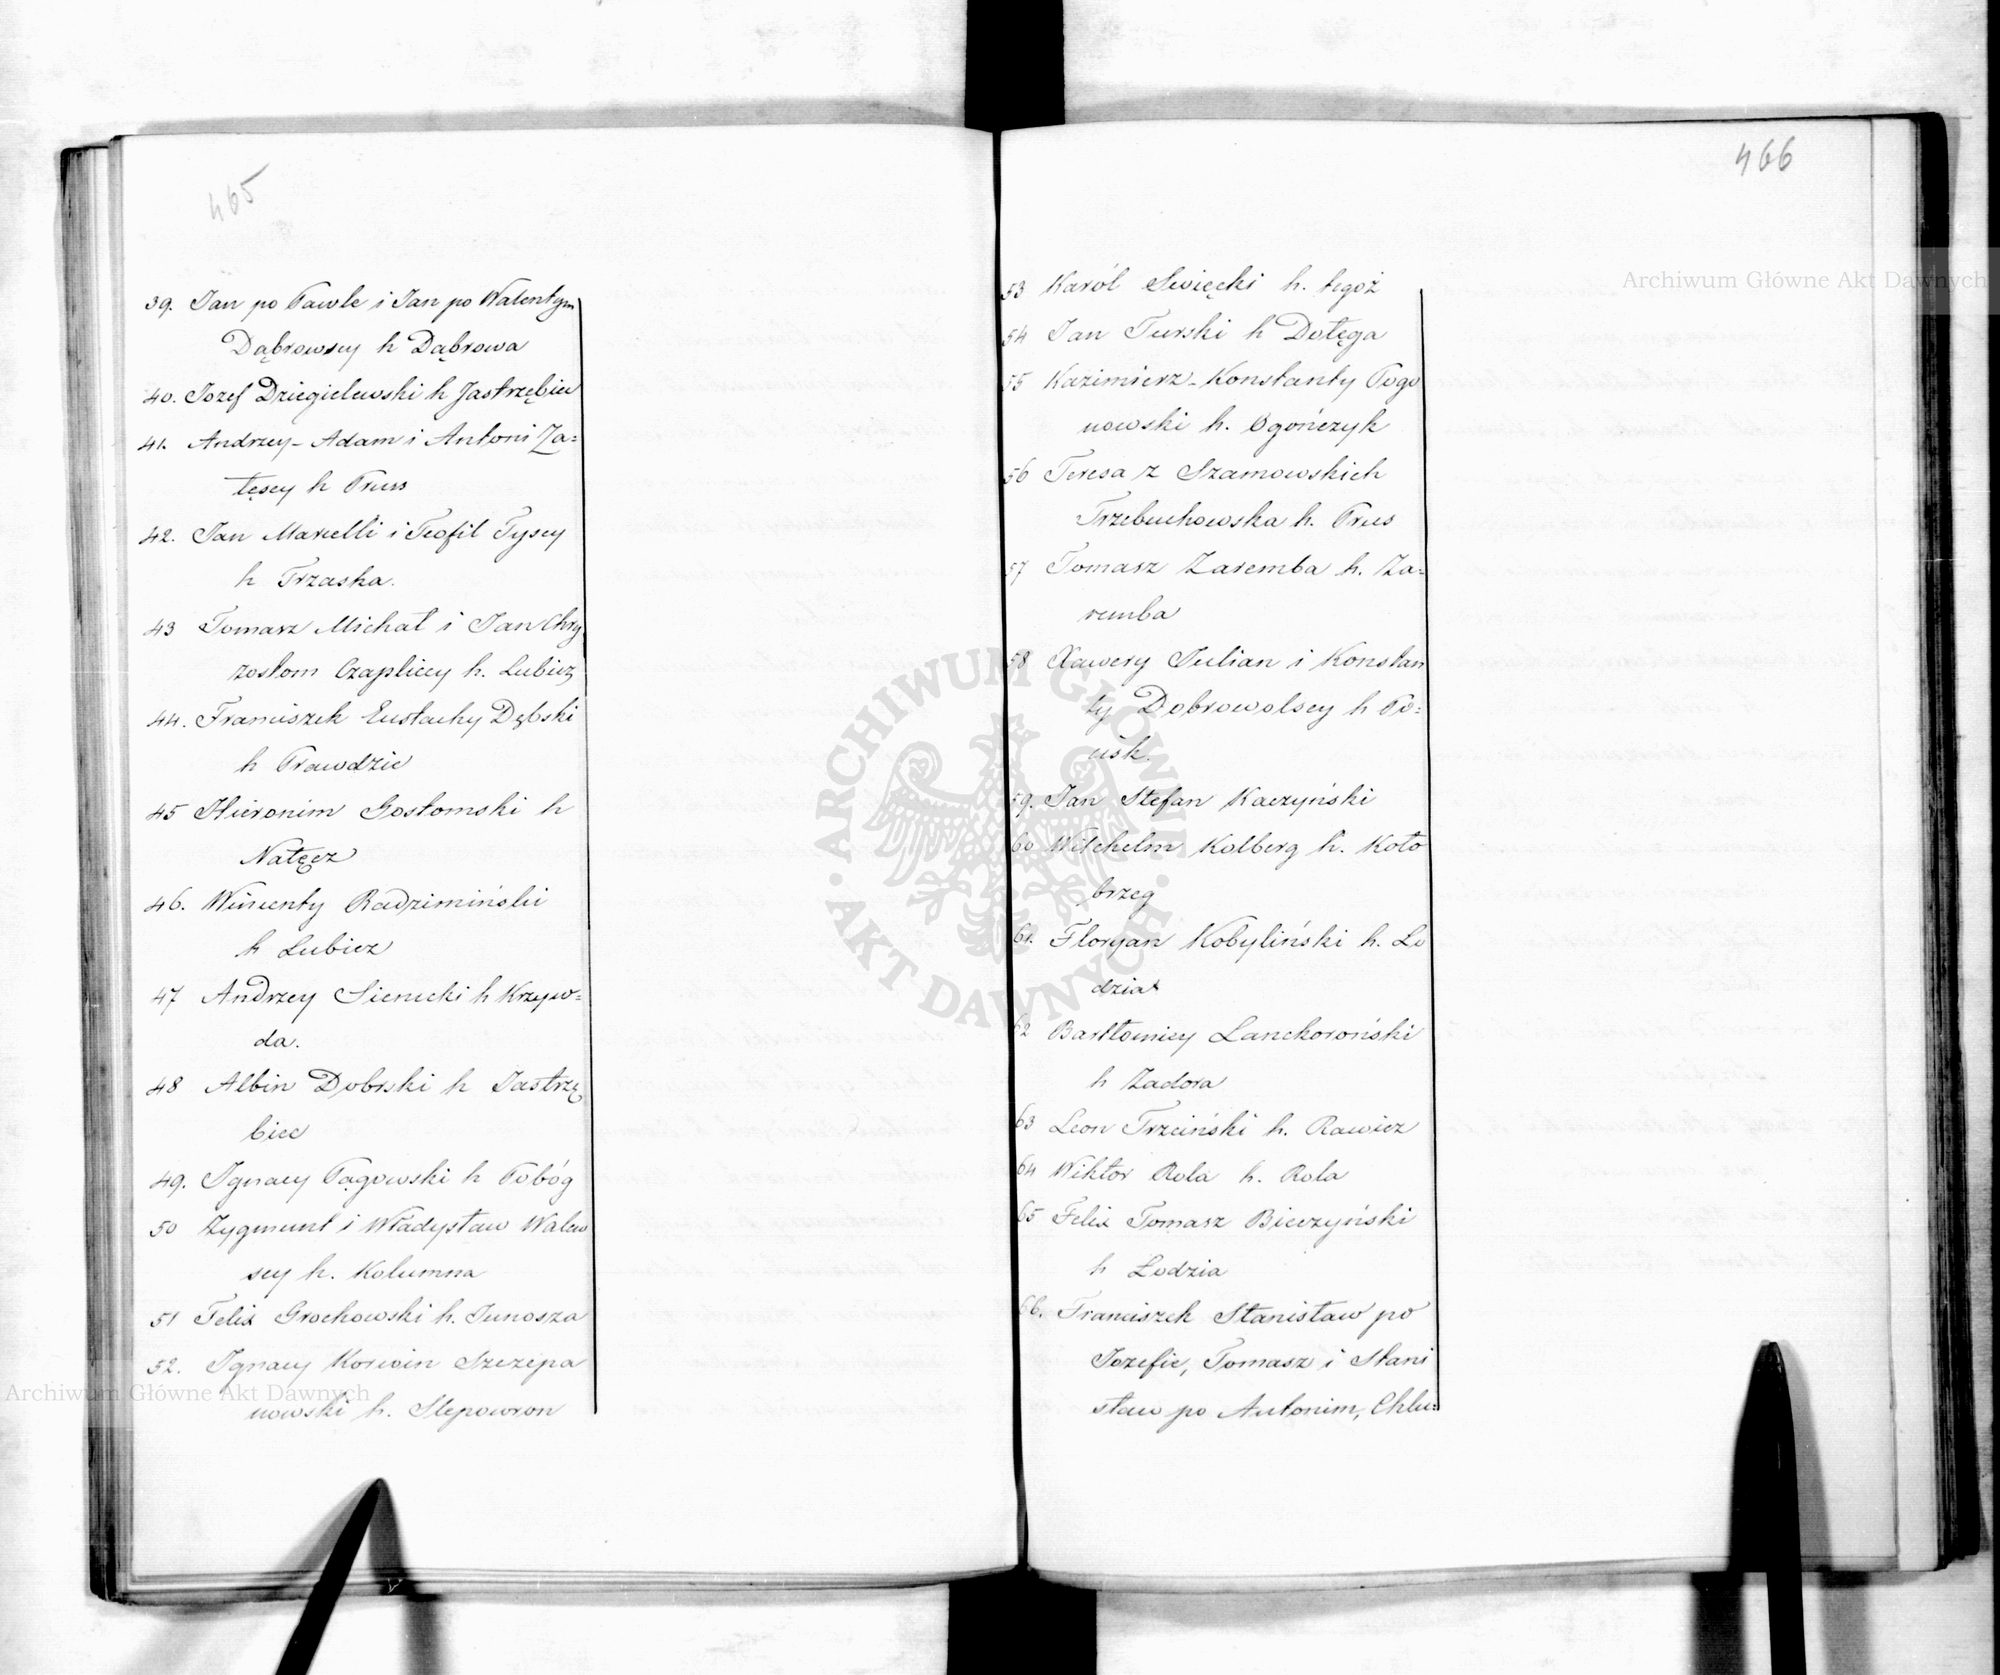 465
39. Jan po Pawle i Jan po Walentym
Dąbrowscy h Dąbrowa
40. Jozef Dziegielewski h Jastrzębiec
41. Andrzey-Adam i Antoni Za=
łęscy h Pruss
42. Jan Marcelli i Teofil Tyscy
h Trzaska.
43 Tomasz Michał i Jan Chry
zostom Czapliccy h. Lubicz
44. Franciszek Eustachy Dębski
h Prawdzic
45 Hieronim Gostomski h
Nałęcz
46. Wincenty Radzimiński
h Lubicz
47 Andrzey Sienicki h Krzyw=
da.
48 Albin Dobrski h Jastrzę
biec
49. Ignacy Pągowski h Pobóg
50 Zygmunt i Władysław Walew
scy h. Kolumna
51 Felix Grochowski h. Junosza
52. Ignacy Korwin Szczepa
nowski h. Slepowron
466
53 Karól Swięcki h. tegoż
54 Jan Turski h Dołęga
55 Kazimierz-Konstanty Pogo
nowski h. Ogończyk
56 Teresa z Szamowskich
Trzebuchowska h. Prus
57 Tomasz Zaremba h. Za=
remba
58 Xawery Julian i Konstan
ty Dobrowolscy h Do=
59. Jan Stefan Kaczyński
60 Wilchelm Kolberg h. Koło
brzeg
61. Floryan Kobyliński h. Lo
dzia
62 Bartłomiey Lanckoroński
h Zadora
63 Leon Trzciński h. Rawicz
64 Wiktor Rola h. Rola
65 Felix Tomasz Bieczyński
h Łodzia
66. Franciszek Stanisław po
Jozefie, Tomasz i Stani
sław po Antonim, Chlu=
Archiwum Główne Akt Dawnych
Archiwum Główne Akt Dawnych
· ARCHIWUM GŁÓWNE · AKT DAWNYCH